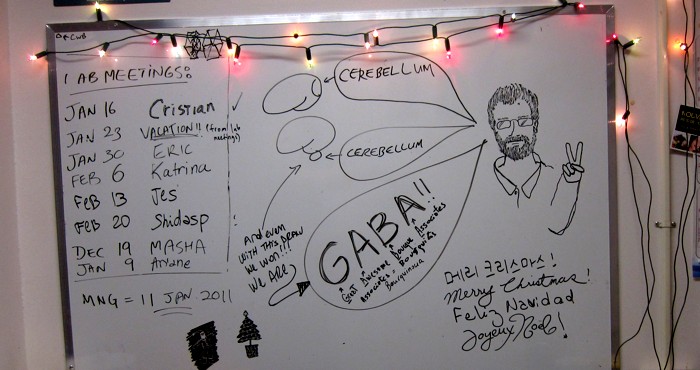 CWB
LAB MEETINGS:
JAN 16 Cristian ✓
JAN 23 VACATION!! (from lab meetings)
JAN 30 ERIC
FEB 6 Katrina
FEB 13 Jes
FEB 20 Shidasp !
DEC 19 MASHA
JAN 9 Ariane
MNG = 11 JAN 2011
CEREBELLUM
CEREBELLUM
And even
WITH THIS DRAW
We won!!!
We ARE
GABA!!
Great Awesome Bouque Associates
Associates
메리 크리스마스!
Merry Christmas!
Feliz Navidad
Joyeux Noël!